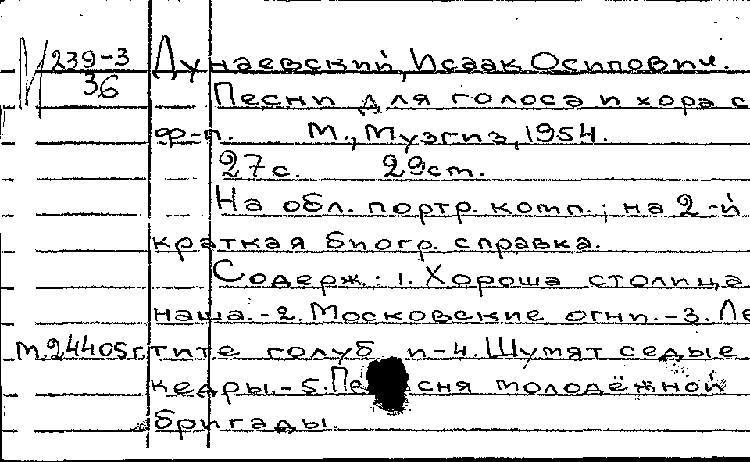 239-3 Дунаевский, Исаак Осипович.
36
Песни для голоса и хора с
ф-п. М., Музгиз, 1954.
27с. 29см.
На обл. портр. комп.; на 2-й
краткая биогр. справка.
Содерж.: 1. Хороша столица
наша.-2. Московские огни.-3. Ле
М.24405г. тите голуб и-4. Шумят седые
кедры.-5. Пе сня молодёжной
бригады.